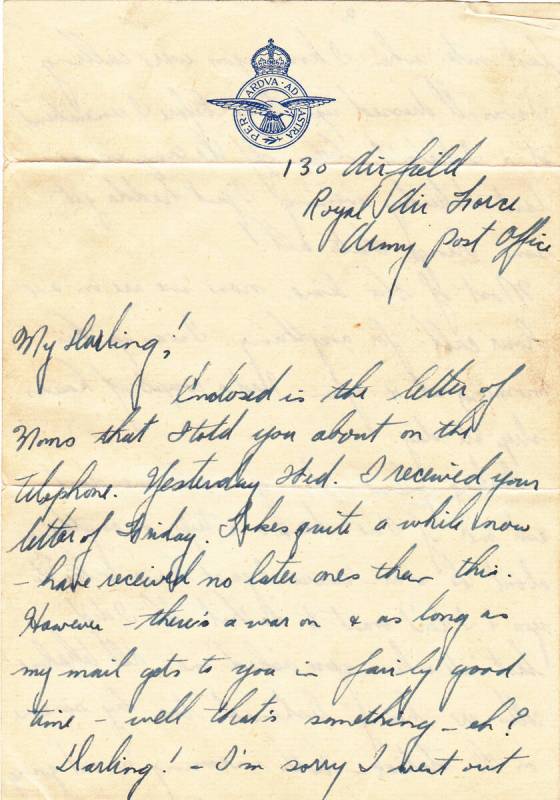 PER · ARDVA · AD ASTRA
130 Airfield
Royal Air Force
Army Post Office
My Darling!
Enclosed is the letter of
Moms that I told you about on the
telephone. Yesterday Wed. I received your
letter of Friday. Takes quite a while now
- have received no later ones than this.
However - there's a war on & as long as
my mail gets to you in fairly good
time - well that's something - eh?
Darling! - I'm sorry I went out